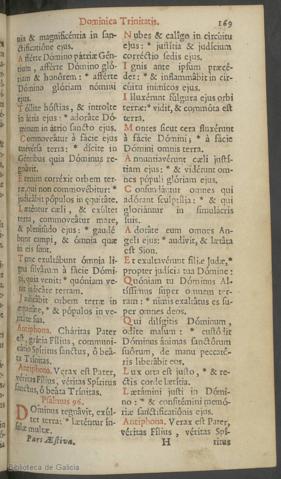 Dominica Trinitatis. 169
nia & magnificéntia in san-
ctificatióne ejus.
Afférte Dómino pátriæ Gén-
tium, afférte Dómino gló-
riam & honórem: * afférte
Dómino glóriam nómini
ejus.
Tóllite hóstias, & introíte
in átria ejus: * adoráte Dó-
minum in átrio sancto ejus.
Commoveátur à fácie ejus
univérsa terra: * dícite in
Géntibus quia Dóminus re-
gnávit.
Etenim corréxit orbem ter-
ræ, qui non commovébitur: *
judicábit pópulos in æquitáte.
Læténtur cæli, & exúltet
terra, commoveátur mare,
& plenitúdo ejus: * gaudé-
bunt campi, & ómnia quæ
in eis sunt.
Tunc exultábunt ómnia li-
gna silvárum à fácie Dómi-
ni, quia venit: * quóniam ve-
nit judicáre terram.
Judicábit orbem terræ in
æquitáte, * & pópulos in ve-
ritáte sua.
Antiphona. Cháritas Pater
est, grácia Fílius, communi-
cátio Spíritus sanctus, ô beá-
ta Trínitas.
Antiphona. Verax est Pater,
véritas Fílius, véritas Spíritus
sanctus, ô beáta Trínitas.
Psalmus 96.
Dóminus regnávit, exúl-
tet terra: * læténtur ín-
sulæ multæ.
Pars Æstiva.
Nubes & calígo in circúitu
ejus: * justítia & judícium
corréctio sedis ejus.
Ignis ante ipsum præcé-
det: * & inflammábit in cir-
cúitu inimícos ejus.
Illuxérunt fúlgura ejus orbi
terræ: * vidit, & commóta est
terra.
Montes sicut cera fluxérunt
à fácie Dómini, * à fácie
Dómini omnis terra.
Annuntiavérunt cæli justí-
tiam ejus: * & vidérunt om-
nes pópuli glóriam ejus.
Confundántur omnes qui
adórant sculptília: * & qui
gloriántur in simulácris
suis.
Adoráte eum omnes An-
geli ejus: * audívit, & lætáta
est Sion.
Et exultavérunt fíliæ Judæ, *
propter judícia tua Dómine:
Quóniam tu Dóminus Al-
tíssimus super omnem ter-
ram: * nimis exaltátus es su-
per omnes deos.
Qui dilígitis Dóminum,
odíte malum: * custódit
Dóminus ánimas sanctórum
suórum, de manu peccató-
ris liberábit eos.
Lux orta est justo, * & re-
ctis corde lætítia.
Lætámini justi in Dómi-
no: * & confitémini memó-
riæ sanctificatiónis ejus.
Antiphona. Verax est Pater,
véritas Fílius, véritas Spí-
H ritus
Biblioteca de Galicia